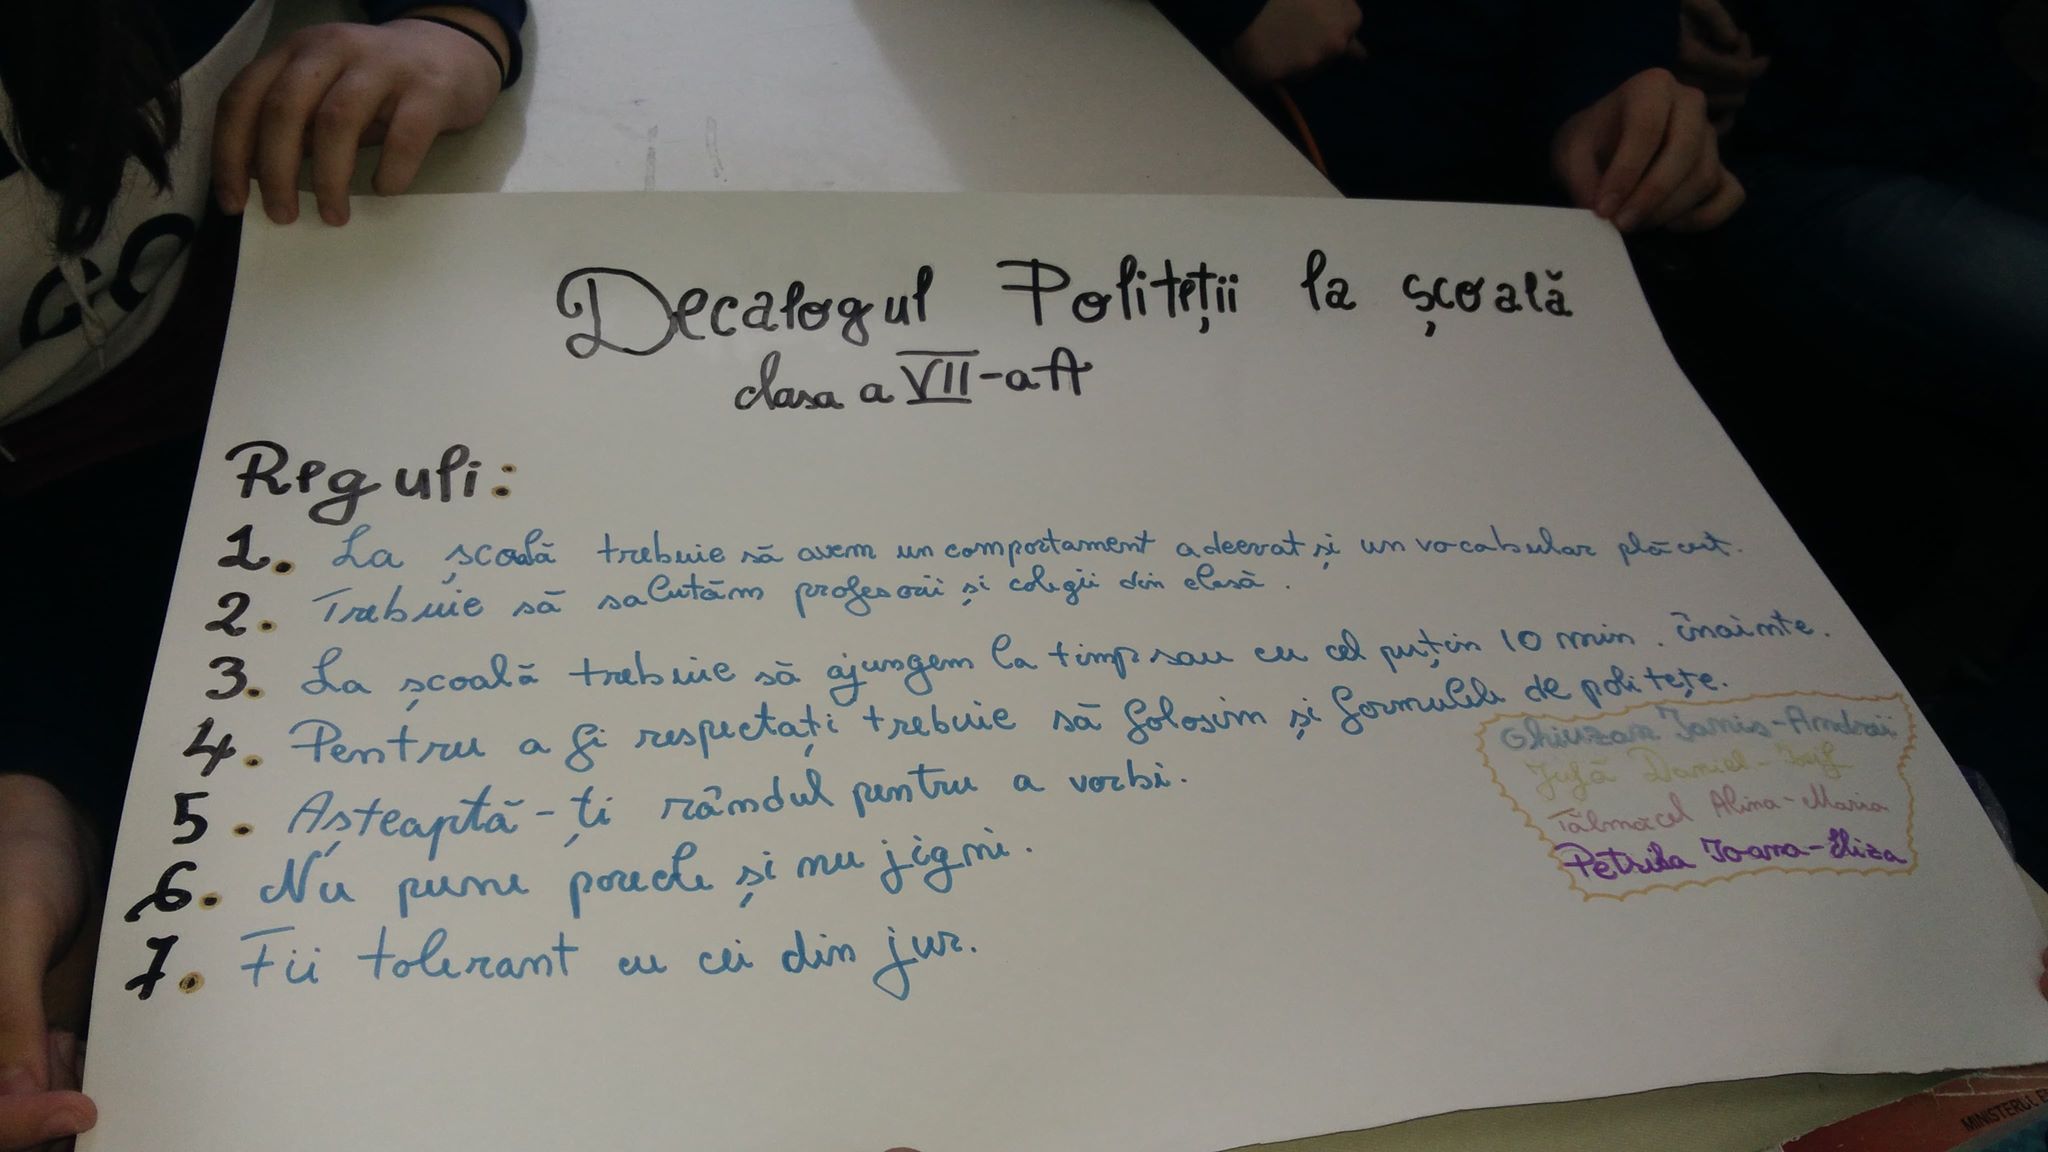 Decalogul Politeții la școală
clasa a VII-a A
Reguli:
1. La școală trebuie să avem un comportament adecvat și un vocabular plăcut.
2. Trebuie să salutăm profesorii și colegii din clasă.
3. La școală trebuie să ajungem la timp sau cu cel puțin 10 min. înainte.
4. Pentru a fi respectați trebuie să folosim și formulele de politețe.
5. Așteaptă-ți rândul pentru a vorbi.
6. Nu pune porecle și nu jigni.
7. Fii tolerant cu cei din jur.
Ghiuzan Ianis-Andrei
Jufă Daniel-Iosif
Tălmăcel Alina-Maria
Petrila Ioana-Eliza
GO
MINISTERUL E